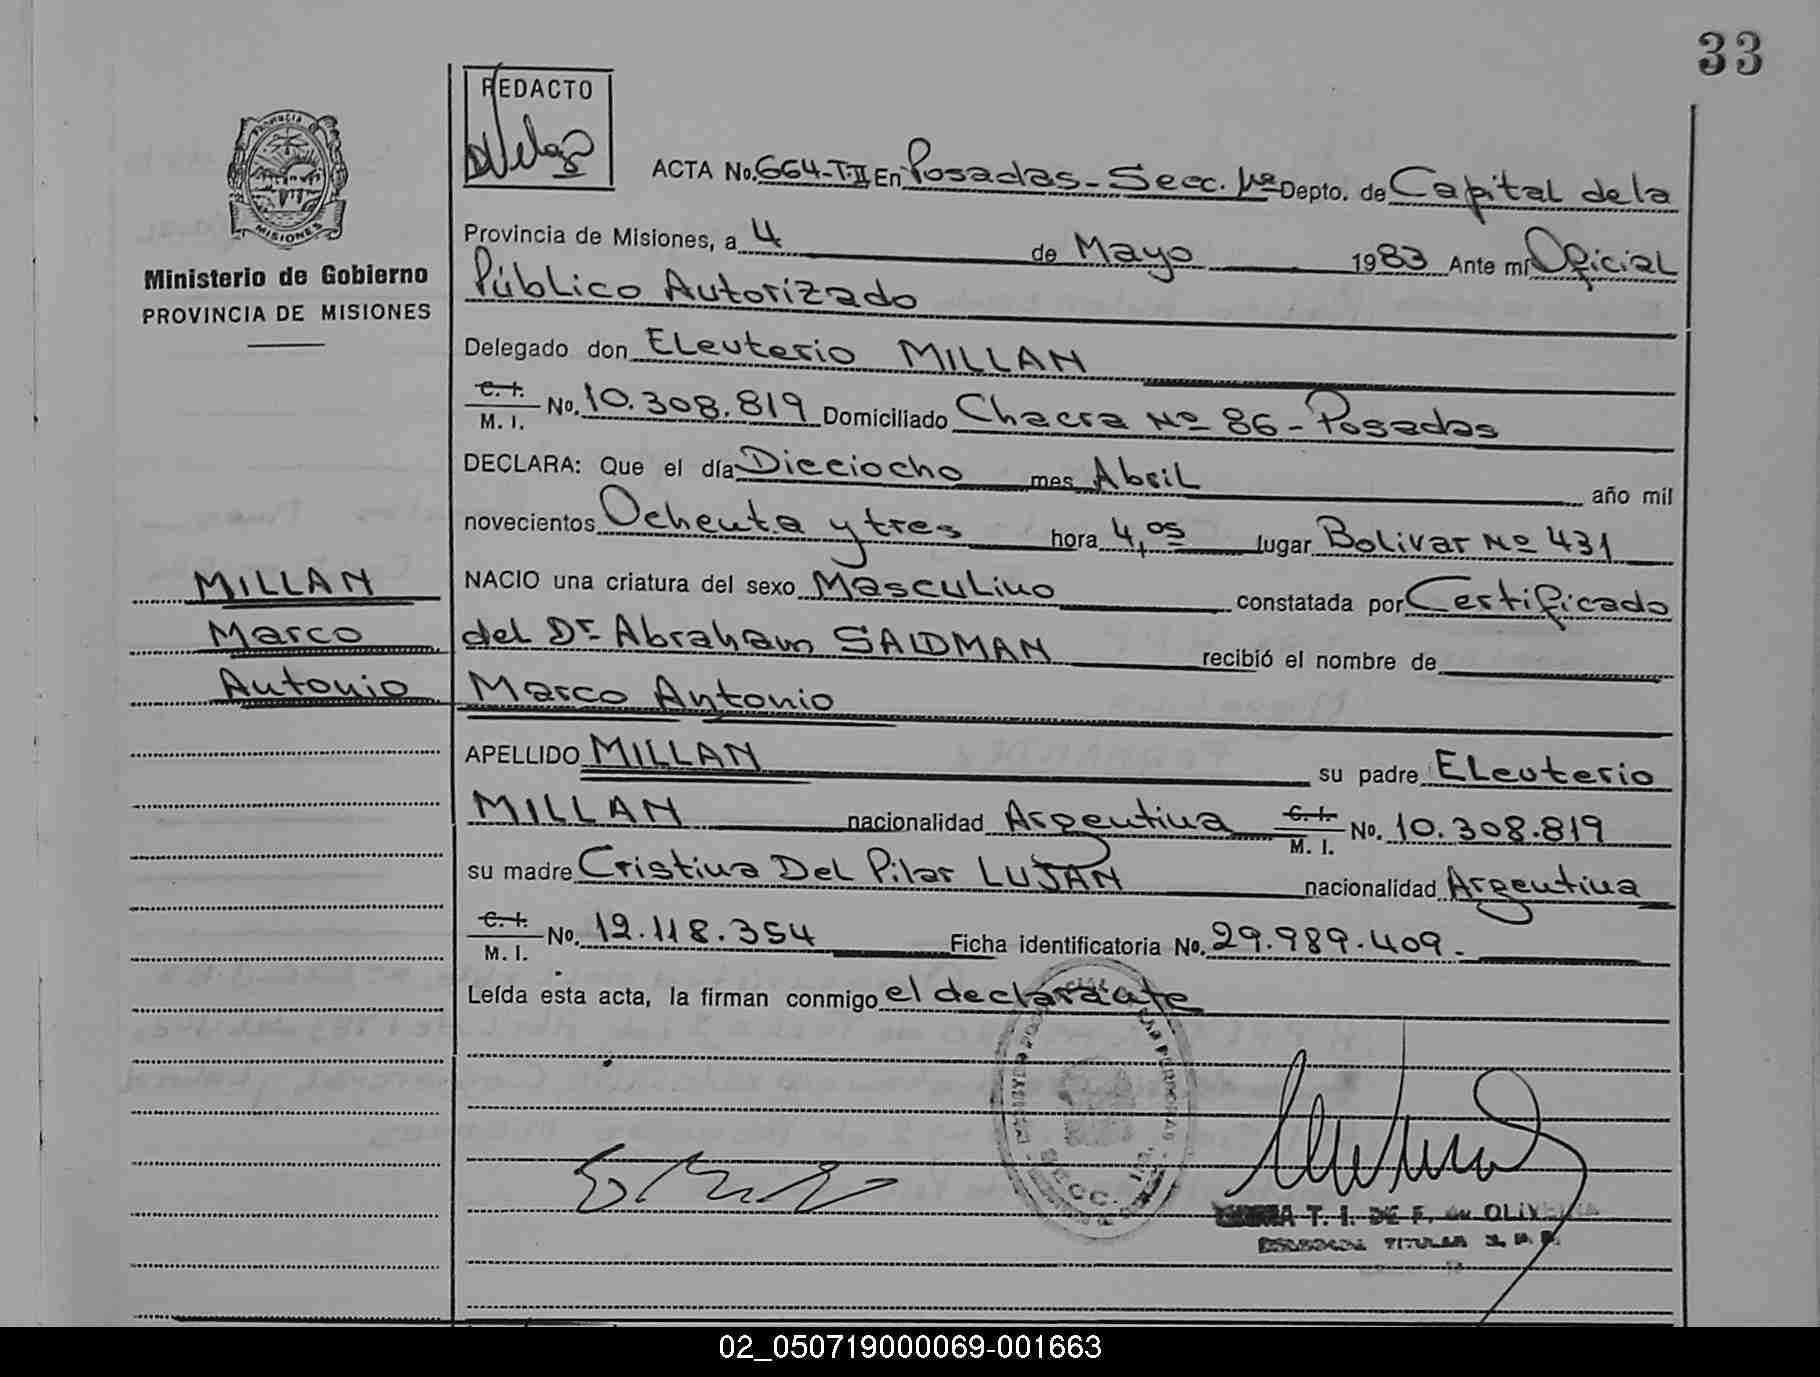 33
REDACTO
ACTA No. 664-T-II En Posadas - Secc. 1ra Depto. de Capital de la
Provincia de Misiones, a 4 de Mayo 1983 Ante mí Oficial
Público Autorizado
PROVINCIA
MISIONES
Ministerio de Gobierno
PROVINCIA DE MISIONES
Delegado don Eleuterio MILLAN
C. I.
M. I. No. 10.308.819 Domiciliado Chacra Nº 86 - Posadas
DECLARA: Que el día Dieciocho mes Abril año mil
novecientos Ochenta y tres hora 4,05 lugar Bolivar Nº 431
NACIO una criatura del sexo Masculino constatada por Certificado
del Dr. Abraham SALDMAN recibió el nombre de
Marco Antonio
MILLAN
Marco
Antonio
APELLIDO MILLAN su padre Eleuterio
MILLAN nacionalidad Argentina C. I.
M. I. No. 10.308.819
su madre Cristina Del Pilar LUJAN nacionalidad Argentina
C. I.
M. I. No. 12.118.354 Ficha identificatoria No. 29.989.409.-
Leída esta acta, la firman conmigo el declarante
SECC. 1ra.
T. I. DE F. de OLIVEIRA
TITULAR
02_050719000069-001663